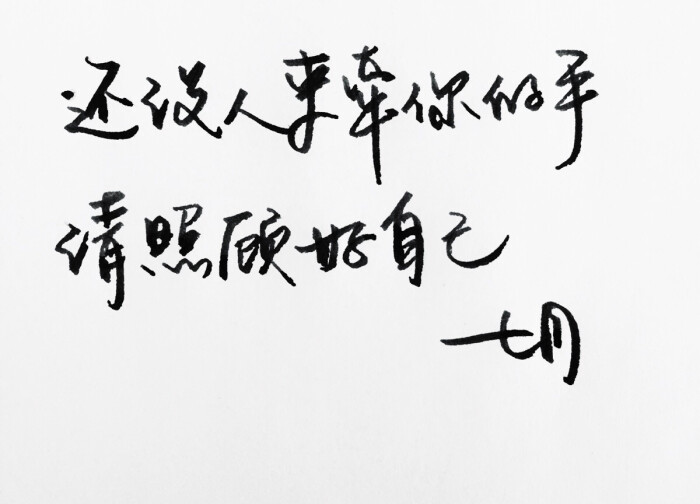 还没人来牵你的手
请照顾好自己
一七月